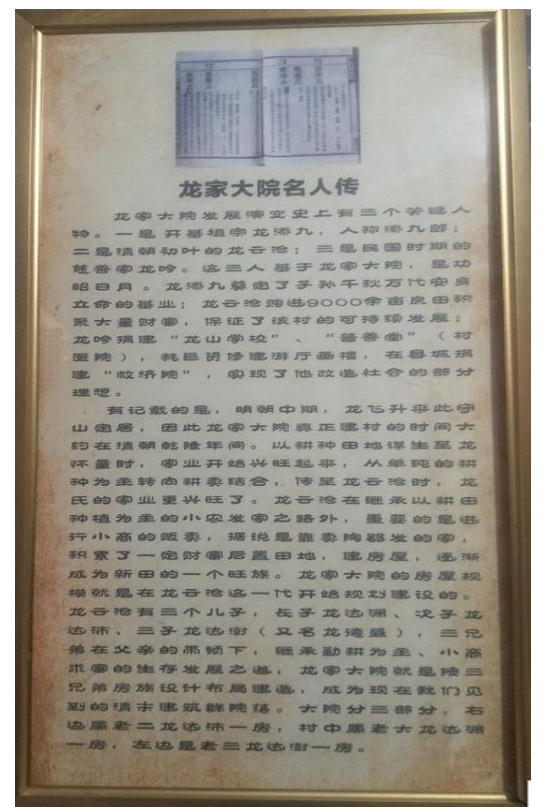 龙家大院名人传
龙家大院发展演变史上有三个关键人
物。一是开基祖宗龙添九，人称添九郎；
二是清朝初叶的龙云沧；三是民国时期的
慈善家龙吟。这三人基于龙家大院，是功
昭日月。龙添九奠定了子孙千秋万代安身
立命的基业；龙云沧购进9000余亩良田积
聚大量财富，保证了该村的可持续发展；
龙吟捐建“龙山学校”、“普善堂”（村
医院），耗巨资修建游厅画楼，在县城捐
建“救济院”，实现了他改造社会的部分
理想。
有记载的是，明朝中期，龙飞升来此守
山定居，因此龙家大院真正建村的时间大
约在清朝乾隆年间。以耕种田地谋生至龙
怀量时，家业开始兴旺起来，从单纯的耕
种为主转向耕卖结合，传至龙云沧时，龙
氏的家业更兴旺了。龙云沧在继承以耕田
种植为主的小农发家之路外，重要的是进
行小商的贩卖，据说是靠卖陶器发的家，
积累了一定财富后置田地，建房屋，逐渐
成为新田的一个旺族。龙家大院的房屋规
模就是在龙云沧这一代开始规划建设的。
龙云沧有三个儿子，长子龙达渊、次子龙
达沛、三子龙达澍（又名龙德盛），三兄
弟在父亲的带领下，继承勤耕为主、小商
求富的生存发展之道，龙家大院就是按三
兄弟房族设计布局建造，成为现在我们见
到的清末建筑群院落。大院分三部分，右
边属老二龙达沛一房，村中属老大龙达渊
一房，左边是老三龙达澍一房。